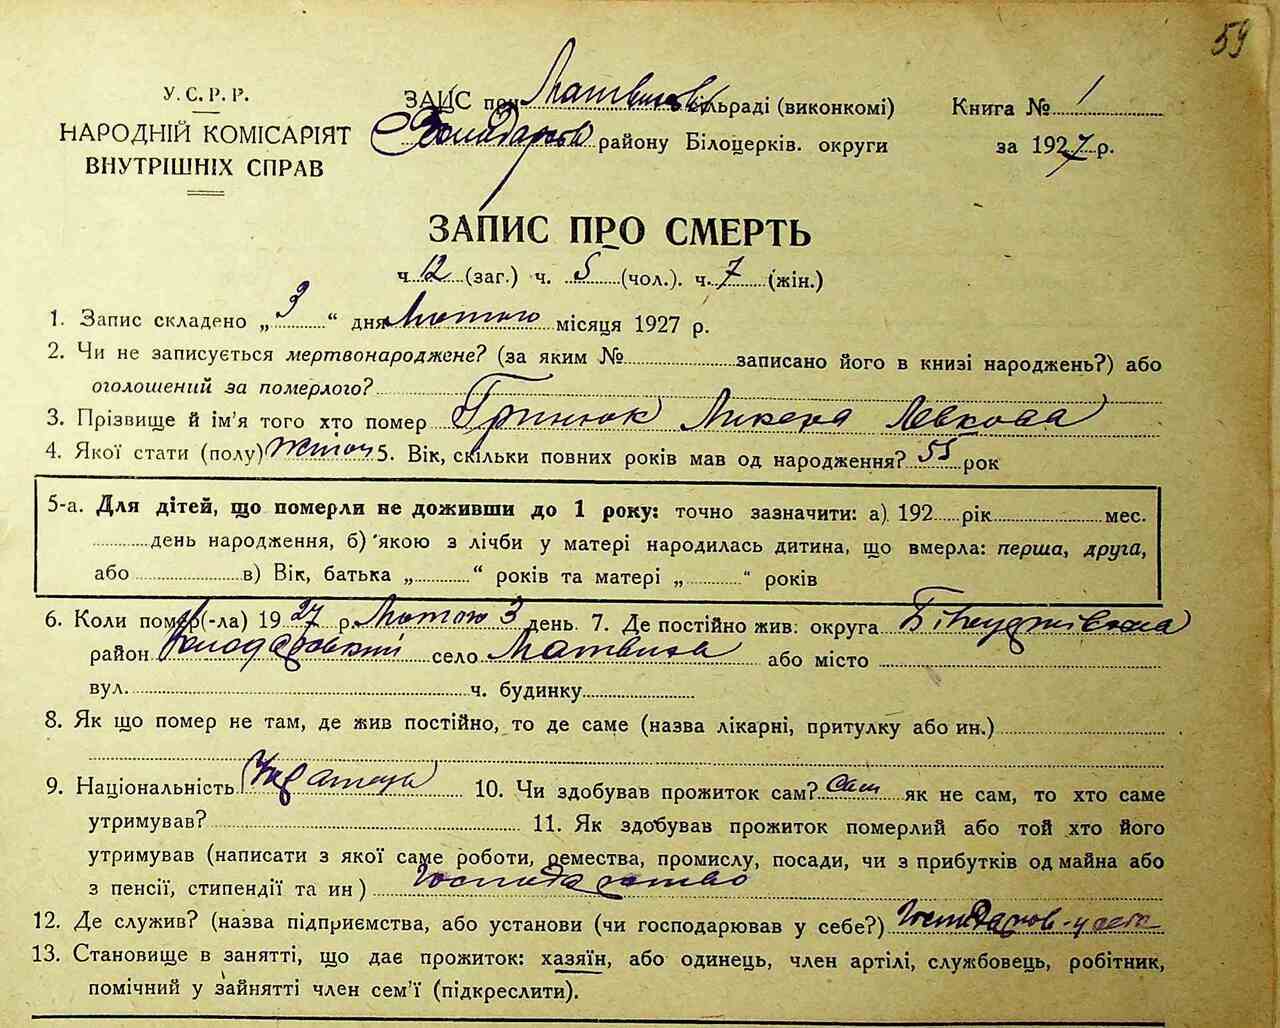 59
У.С.Р.Р.
НАРОДНІЙ КОМІСАРІЯТ
ВНУТРІШНІХ СПРАВ
ЗАПИС при сільраді (виконкомі)
району Білоцерків. округи
Книга № 1
за 1927 р.
ЗАПИС ПРО СМЕРТЬ
ч. 12 (заг.) ч. 5 (чол.). ч. 7 (жін.)
1. Запис складено „ 3 “ дня Лютого місяця 1927 р.
2. Чи не записується мертвонароджене? (за яким № записано його в книзі народжень?) або
оголошений за померлого?
3. Прізвище й ім'я того хто помер Гринюк Ликера Левкова
4. Якої статі (полу) 5. Вік, скільки повних років мав од народження? 55 рок
5-а. Для дітей, що померли не доживши до 1 року: точно зазначити: а) 192 рік мес.
день народження, б) якою з лічби у матері народилась дитина, що вмерла: перша, друга,
або в) Вік, батька „ “ років та матері „ “ років
6. Коли помер(-ла) 1927 р. Лютого 3 день. 7. Де постійно жив: округа
район село Матвиха або місто
вул. ч. будинку
8. Як що помер не там, де жив постійно, то де саме (назва лікарні, притулку або ин.)
9. Національність 10. Чи здобував прожиток сам? сам як не сам, то хто саме
утримував? 11. Як здобував прожиток померлий або той хто його
утримував (написати з якої саме роботи, ремества, промислу, посади, чи з прибутків од майна або
з пенсії, стипендії та ин) Господарство
12. Де служив? (назва підприємства, або установи (чи господарював у себе?) Господарюв. у себе
13. Становище в занятті, що дає прожиток: хазяїн, або одинець, член артілі, службовець, робітник,
помічний у зайнятті член сем'ї (підкреслити).